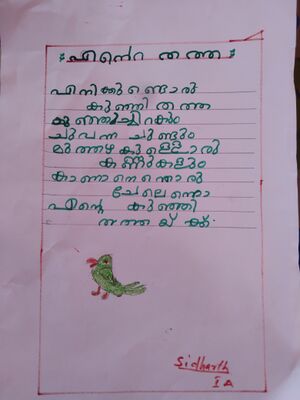 എൻ്റെ തത്ത
എനിക്കുണ്ടൊരു
കുഞ്ഞി തത്ത
കുഞ്ഞിച്ചിറകും
ചുവന്ന ചുണ്ടും
മുത്തഴകുള്ളൊരു
കണ്ണുകളും
കാണാനെന്തൊരു
ചേലെന്നൊ
എൻ്റെ കുഞ്ഞി
തത്തയ് ക്ക്
Sidharth
I A